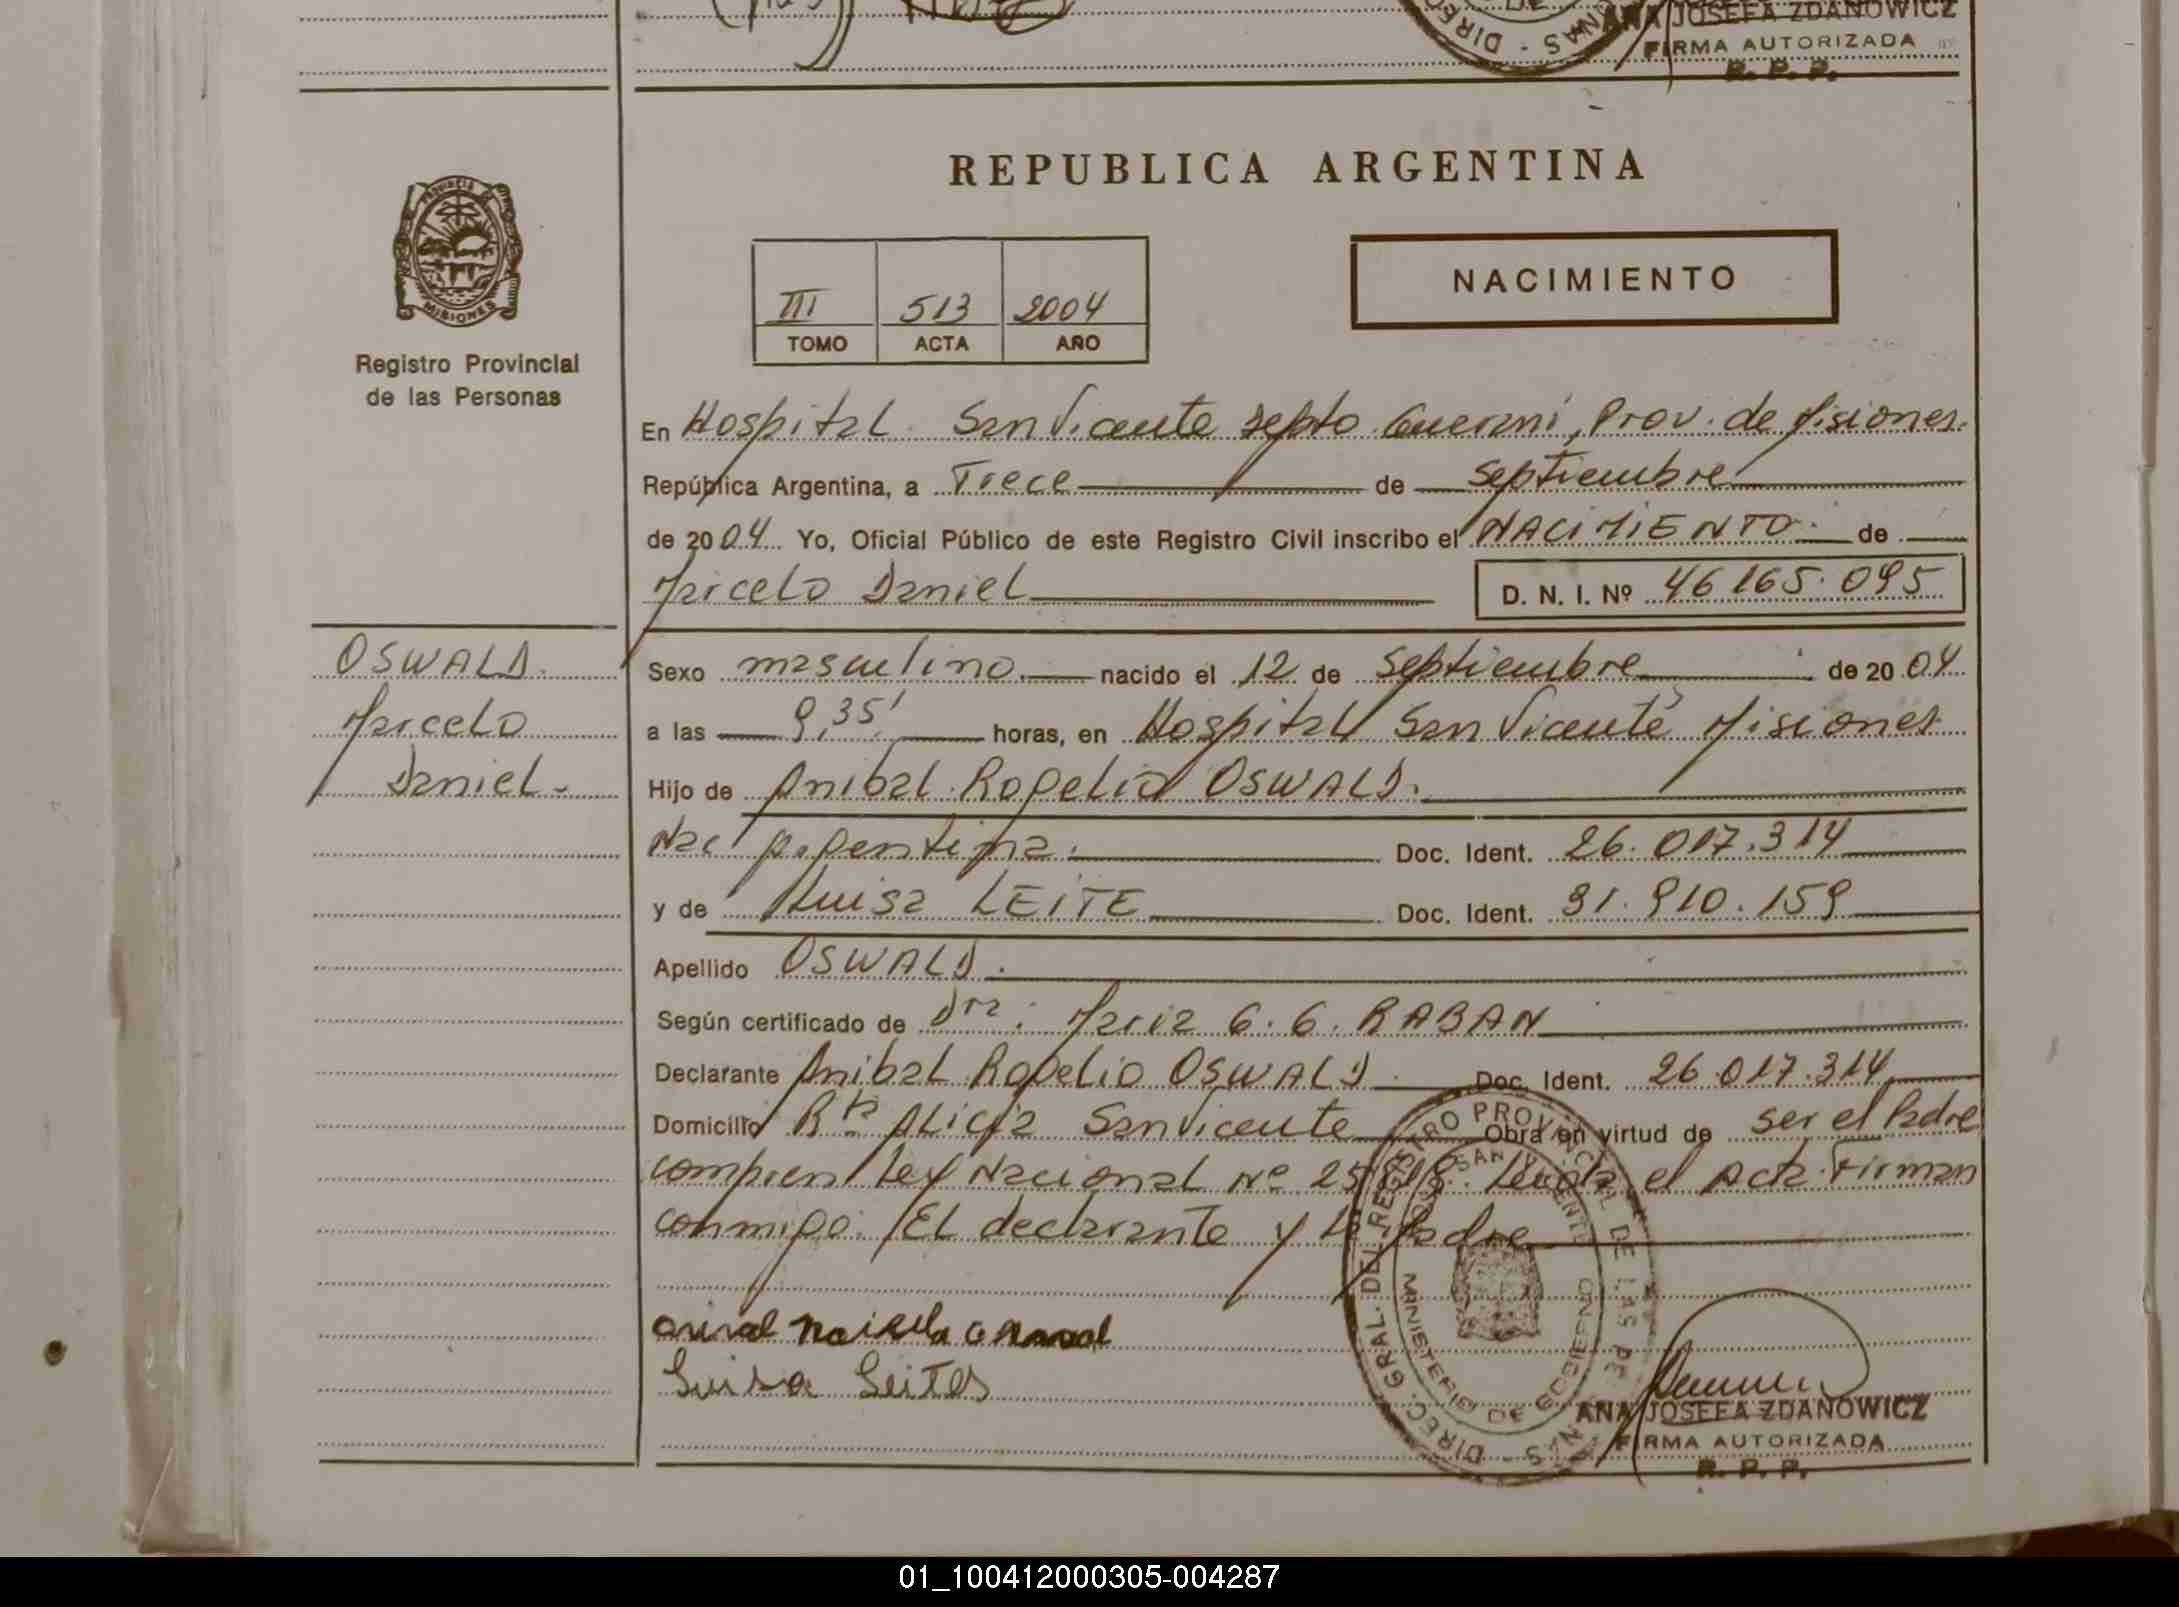 ANA JOSEFA ZDANOWICZ
FIRMA AUTORIZADA
R. P. P.
PROVINCIA DE
MISIONES
Registro Provincial
de las Personas
REPUBLICA ARGENTINA
III 513 2004
TOMO ACTA AÑO
NACIMIENTO
En Hospital San Vicente Depto Guarani, Prov. de Misiones.
República Argentina, a Trece de Septiembre
de 2004 Yo, Oficial Público de este Registro Civil inscribo el NACIMIENTO de
Marcelo Daniel D. N. I. Nº 46 165.095
OSWALD.
Marcelo
Daniel.-
Sexo masculino. nacido el 12 de Septiembre de 2004
a las 9,35' horas, en Hospital San Vicente Misiones
Hijo de Anibal Rogelio OSWALD.
Nac Argentina. Doc. Ident. 26.017.314
y de Luisa LEITE Doc. Ident. 31.910.159
Apellido OSWALD.
Según certificado de Dra: Maria G. G. RABAN
Declarante Anibal Rogelio OSWALD Doc. Ident. 26.017.314
Domicilio Rta Alicia San Vicente Obra en virtud de ser el Padre
Ley Nacional Nº el Acta Firman
conmigo: El declarante y la Madre
Luisa Leites
DIREC. GRAL. DEL REGISTRO PROVINCIAL DE LAS PERSONAS
SAN VICENTE
MINISTERIO DE GOBIERNO
ANA JOSEFA ZDANOWICZ
FIRMA AUTORIZADA
R. P. P.
01_100412000305-004287